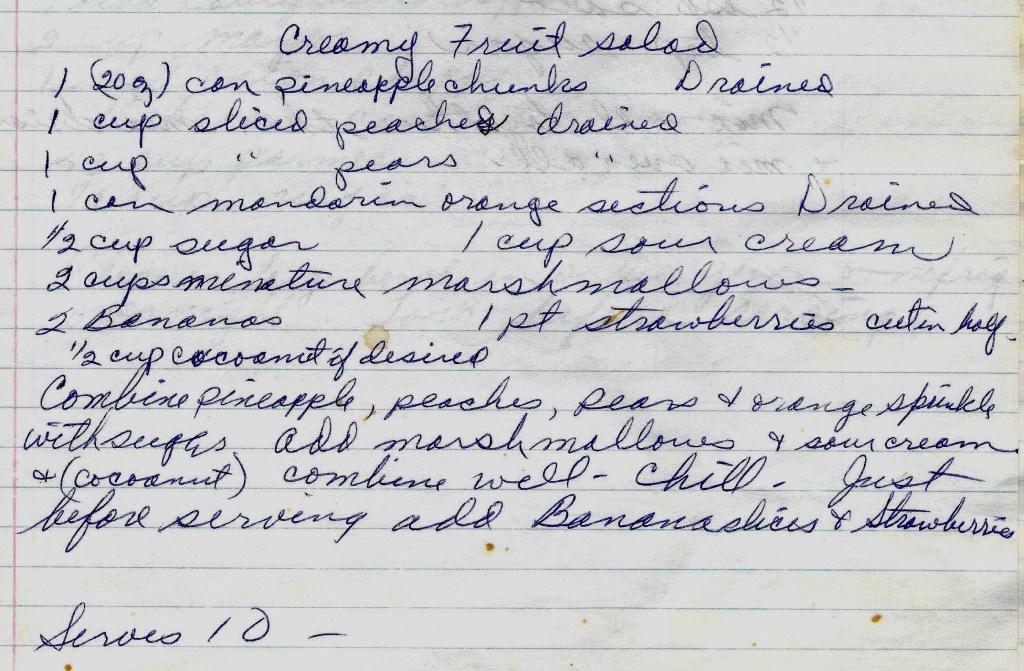 Creamy Fruit salad
1 (20 oz) can pineapple chunks Drained
1 cup sliced peaches drained
1 cup " pears "
1 can mandarin orange sections Drained
1/2 cup sugar 1 cup sour cream
2 cups menature marshmallows -
2 Bananas 1 pt strawberries cut in half -
1/2 cup cocoanut if desired
Combine pineapple, peaches, pears & orange sprinkle
with sugar. add marshmallows & sour cream
& (cocoanut) combine well - Chill - Just
before serving add Banana slices & Strawberries
Serves 10 -